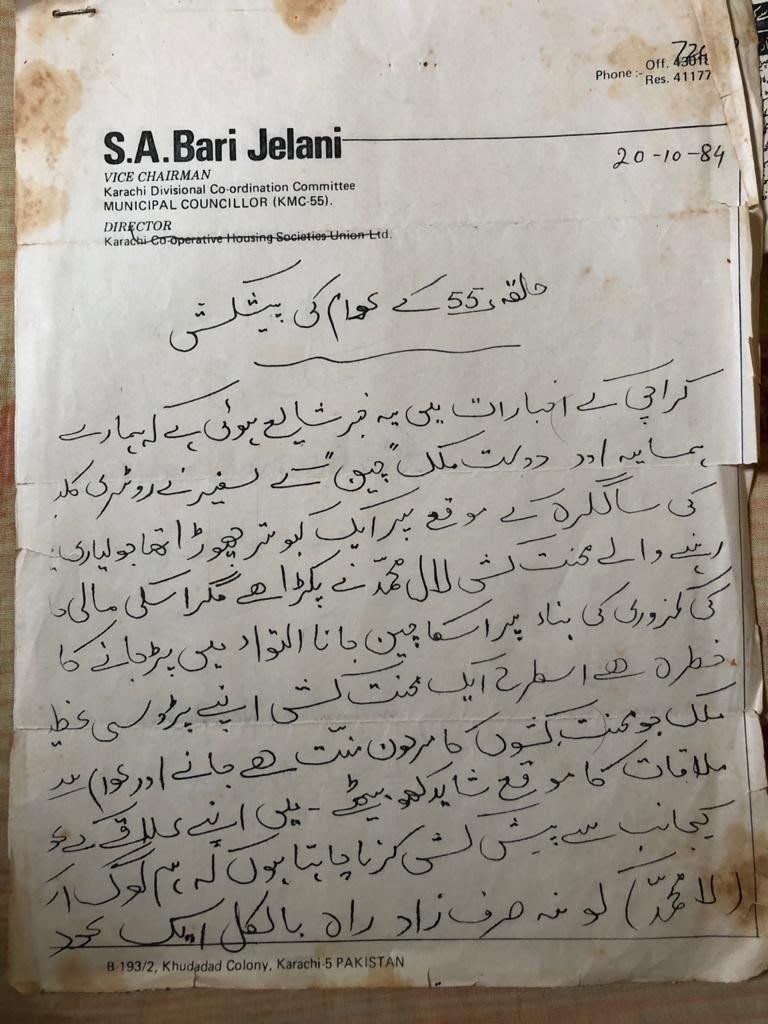 726
Off. 43011
Phone :- Res. 41177
S.A.Bari Jelani
20-10-84
VICE CHAIRMAN
Karachi Divisional Co-ordination Committee
MUNICIPAL COUNCILLOR (KMC-55).
DIRECTOR
Karachi Co-operative Housing Societies Union Ltd.
حلقہ 55 کے عوام کی پیشکش
کراچی کے اخبارات میں یہ خبر شایع ہوئی ہے کہ ہمارے
ہمسایہ اور دوست ملک "چین" کے سفیر نے روٹری کلب
کی سالگرہ کے موقع پر ایک کبوتر چھوڑا تھا جو لیاری
رہنے والے محنت کش لال محمد نے پکڑا ھے مگر اسکی مالی
کی کمزوری کی بناء پر اسکا چین جانا التواء میں پڑ جانے کا
خطرہ ھے اسطرح ایک محنت کش اپنے پڑوسی
ملک جو محنت کشوں کا مرہون منّت ھے جانے اور عوام سے
ملاقات کا موقع شاید کھو بیٹھے - میں اپنے علاقے کے
کیجانب سے پیش کش کرنا چاہتا ہوں کہ ہم لوگ
(لا محمّد) کو نہ صرف زاد راہ بالکل ایک
B-193/2, Khudadad Colony, Karachi-5 PAKISTAN